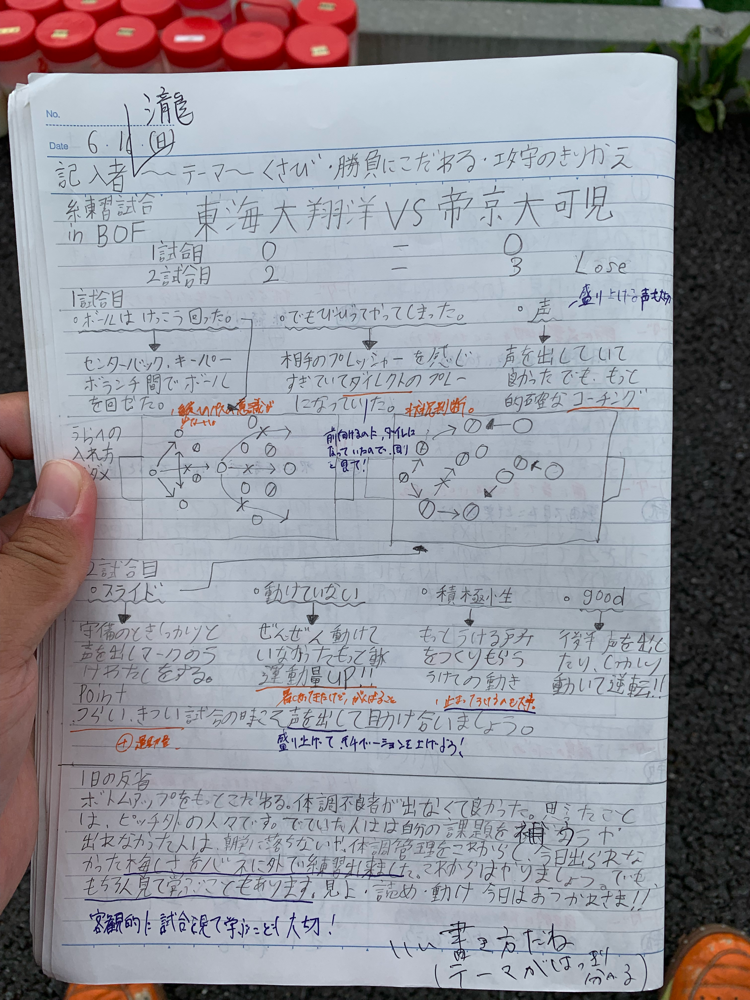 No.
瀧
Date 6.16(日)
記入者 〜テーマ〜 くさび・勝負にこだわる・攻守のきりかえ
練習試合 東海大翔洋 VS 帝京大可児
in BOF
1試合目 0 − 0
2試合目 2 − 3 Lose
1試合目
盛り上げる声も大切
・ボールはけっこう回った。
・でもびびってやってしまった。
・声
センターバック、キーパー
ボランチ間でボール
を回せた。
相手のプレッシャーを感じ
すぎていてダイレクトのプレー
になっていた。
声を出していて
良かったでも、もっと
的確なコーチング
状況判断。
うらへの
入れ方
ダメ
前向けるのに、ダイレに
なっていたので、周り
を見て!
2試合目
・スライド
・動けていない
・積極性
・good
守備のときしっかりと
声を出しマークのうら
けわたしをする。
ぜんぜん動けて
いなかったもっと動
運動量UP!!
もっとうける
をつくりもらう
うけての動き
後半声を出し
たり、しっかり
動いて逆転!!
Point
つらい、きつい試合の時こそ声を出して助け合いましょう。
+運動量
盛り上げてモチベーションを上げよう!
1日の反省
ボトムアップをもっとこだわる。体調不良者が出なくて良かった。思ったこと
は、ピッチ外の人々です。でていた人は自分の課題を補
出れなかった人は、体調管理をこれからし、今日出られな
かった 外で練習出来ました。これからはやりましょう。でも、
もちろん見て学ぶこともあります。見よ・詰め・動け 今日はおつかれさま!!
客観的に試合を見て学ぶことも大切!
いい書き方だね
(テーマがはっきり
分かる)